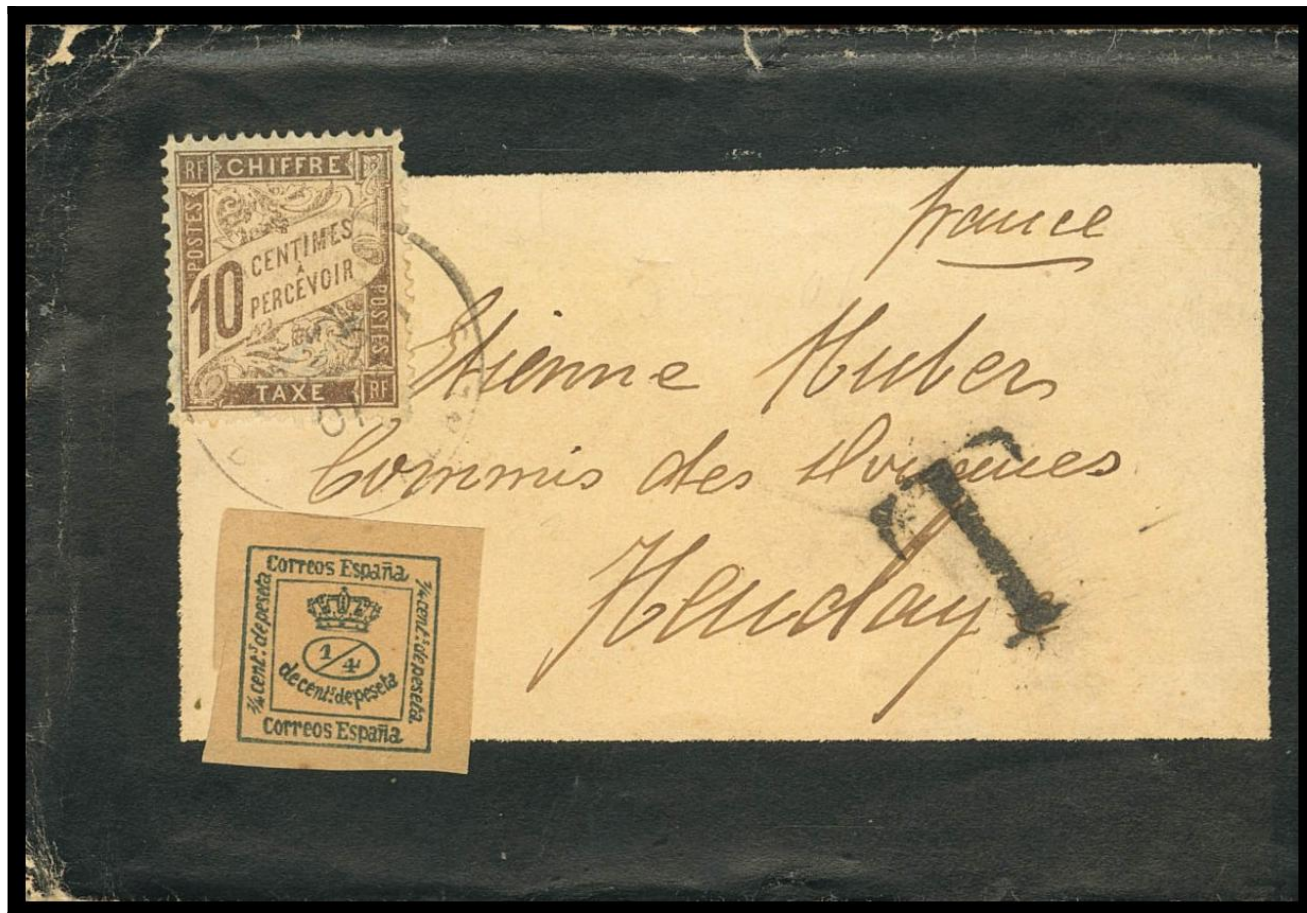 RF CHIFFRE RF
POSTES
10 CENTIMES
À
PERCEVOIR
POSTES
TAXE RF
france
Etienne Huber
Commis des Douanes
Hendaye
T
Correos España
1/4 cent.s de peseta
1/4 cent.s de peseta
1/4
de cent.s de peseta
Correos España